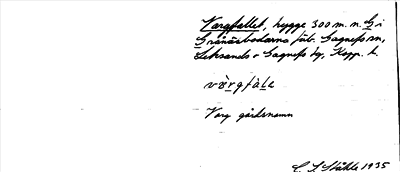 Vargfallet, hygge 300 m. n. G i
Gränäsbodarna fäb. Gagnefs sn,
Leksands o Gagnefs tg, Kopp. l.
vàrgfàle
Varg gårdsnamn
C. I. Ståhle 1935